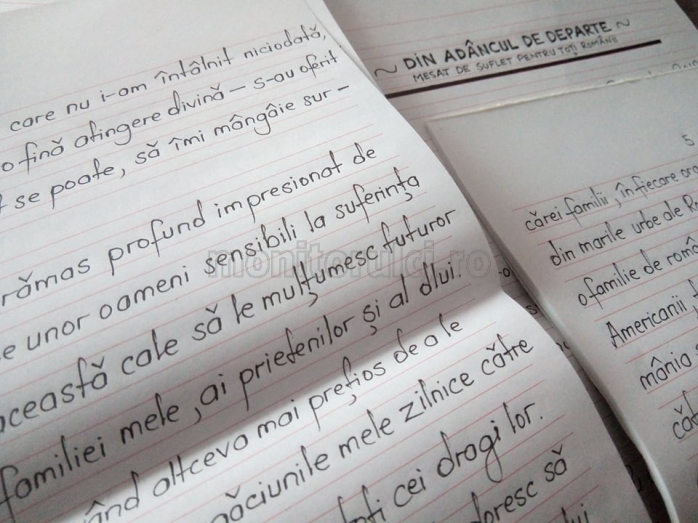 care nu i-am întâlnit niciodată,
o fină atingere divină – s-au oferit
se poate, să îmi mângâie sur-
rămas profund impresionat de
unor oameni sensibili la suferința
această cale să le mulțumesc tuturor
familiei mele, ai prietenilor și al dlui.
altceva mai prețios de a le
mele zilnice către
cei dragi lor.
doresc să
~ DIN ADÂNCUL DE DEPARTE ~
MESAJ DE SUFLET PENTRU TOȚI ROMÂNII
5
cărei familii, în fiecare
din marile urbe ale
o familie de
Americanii
mânia
monitorulcj.ro